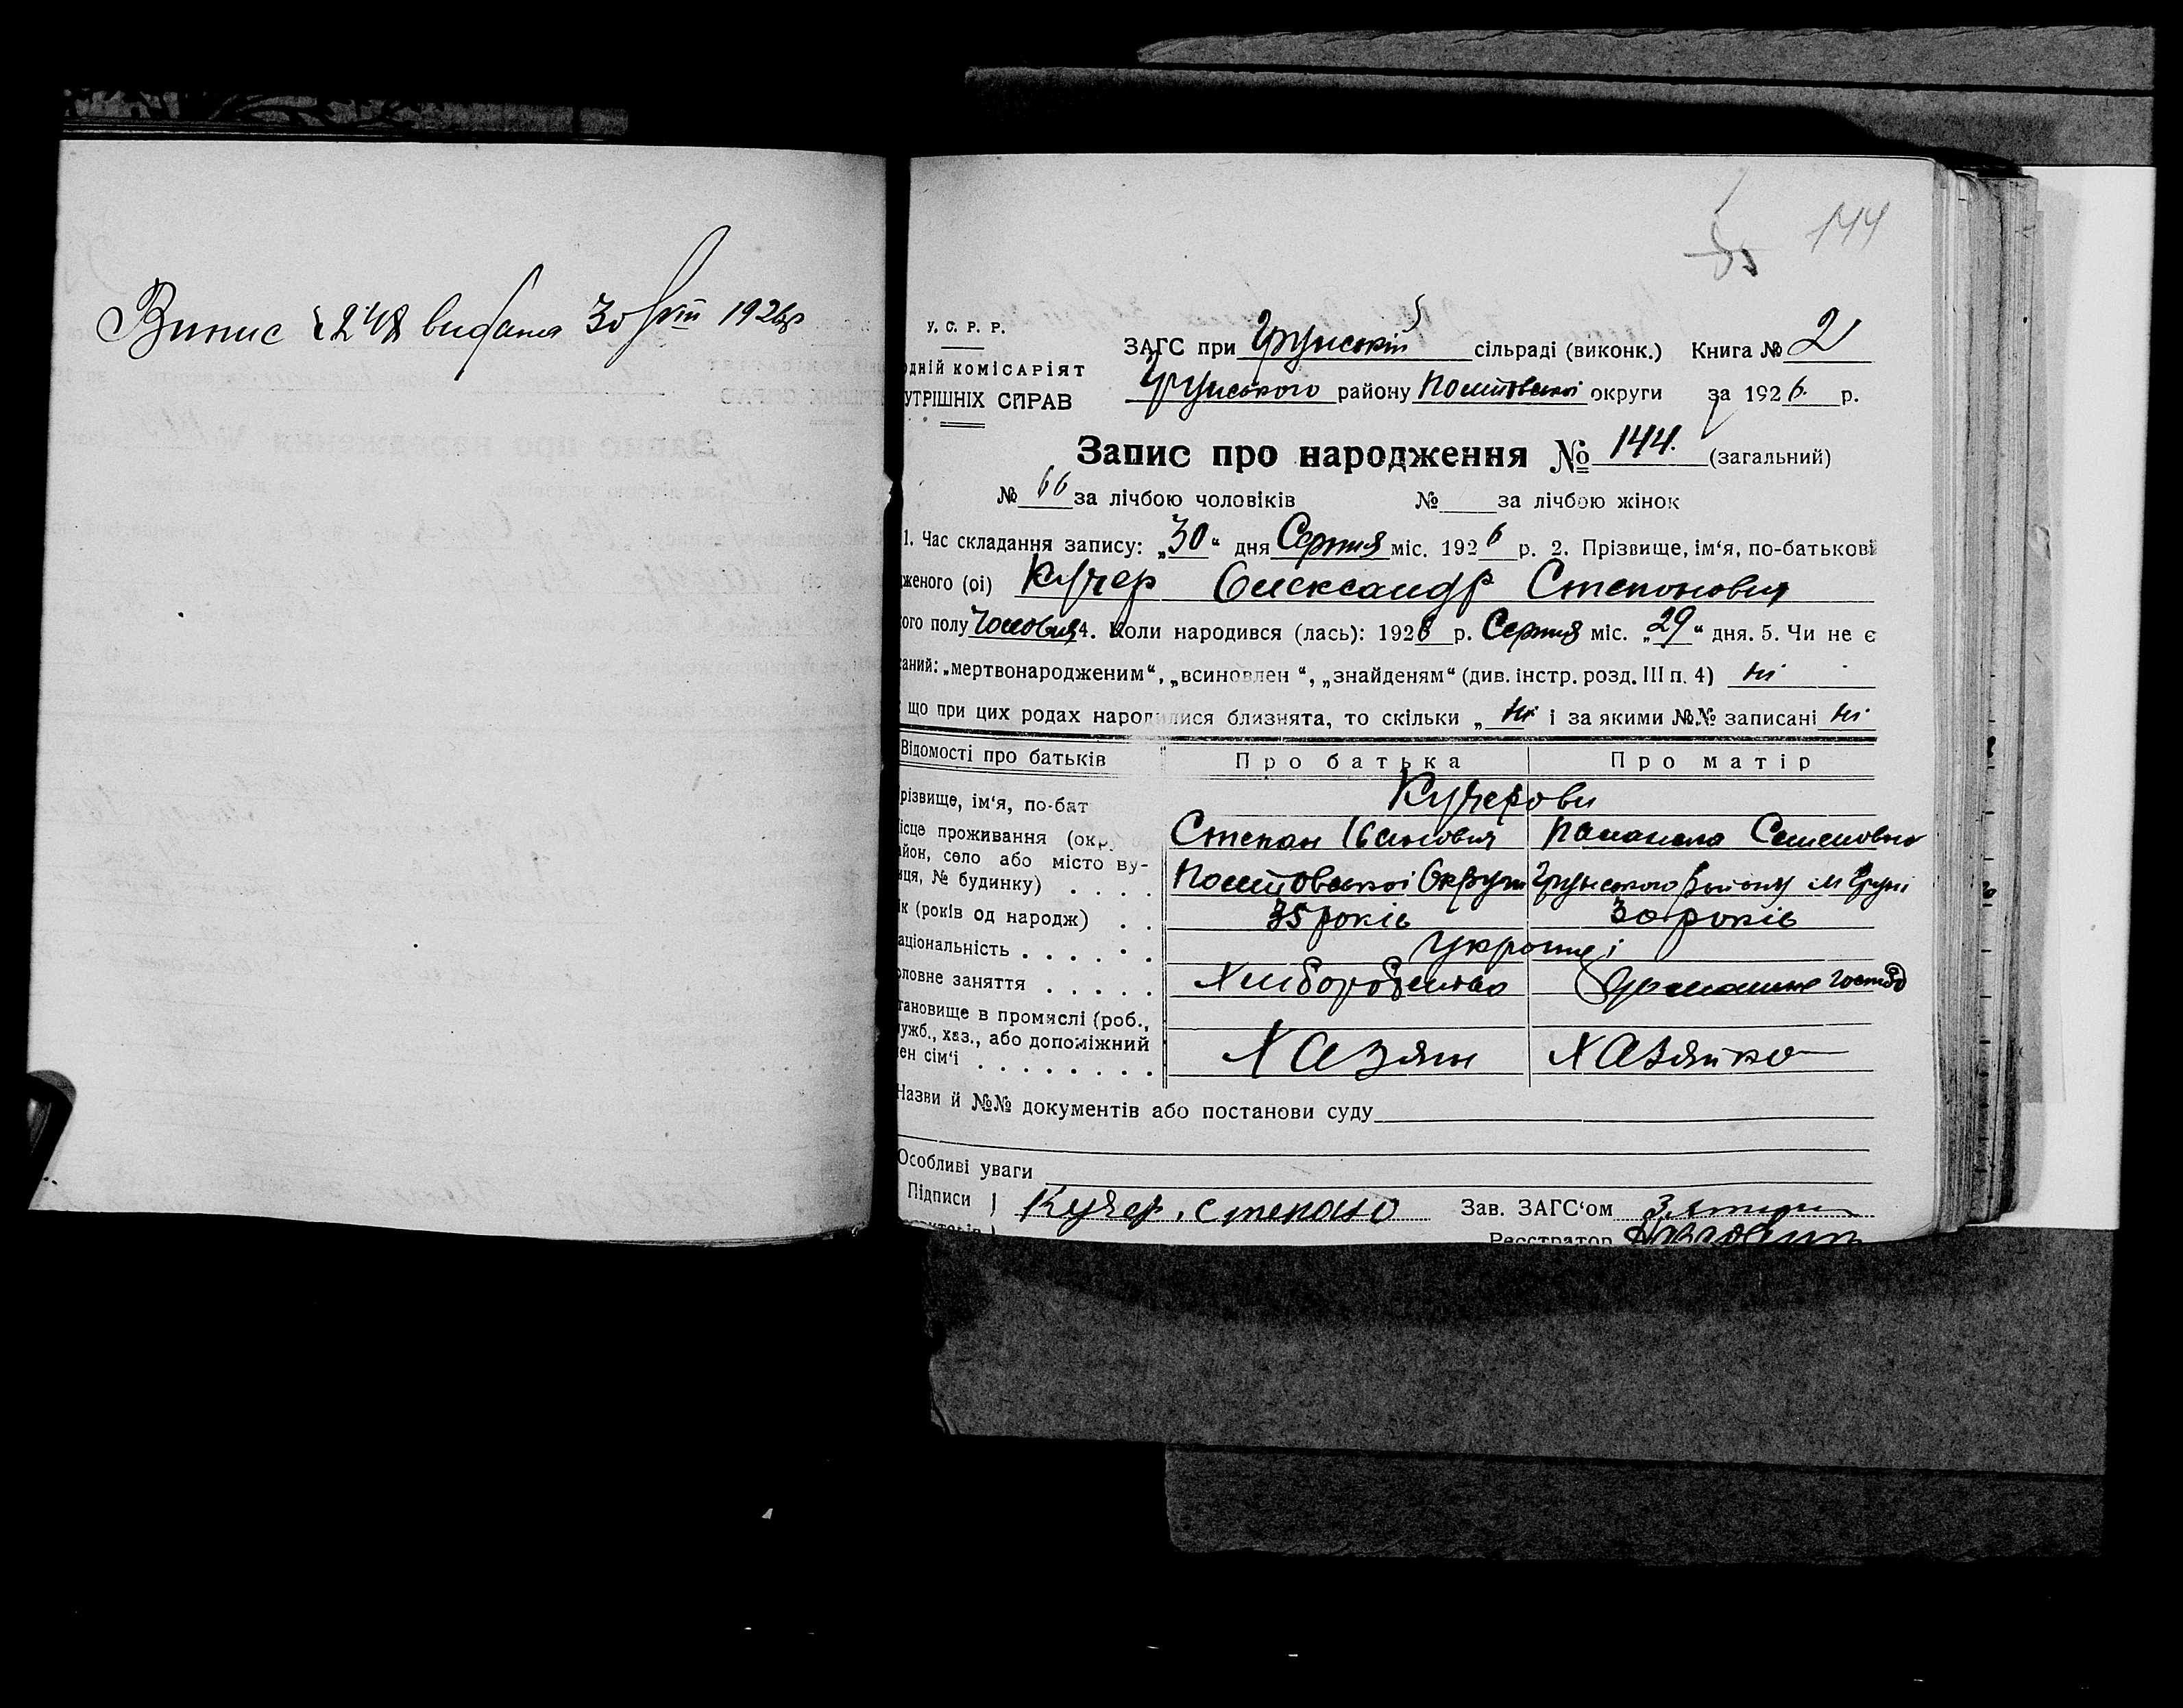 Випис 248 видана 30/VIII 1926р
144
У. С. Р. Р.
ЗАГС при Грунській сільраді (виконк.) Книга № 2
одній комісаріят
Грунського району Полтавської округи за 1926 р.
УТРІШНІХ СПРАВ
Запис про народження № 144. (загальний)
№ 66 за лічбою чоловіків № за лічбою жінок
1. Час складання запису: „30“ дня Серпня міс. 1926 р. 2. Прізвище, ім‘я, по-батькові
женого (ої) Кучер Олександр Степонович
ого полу Чоловіч 4. Коли народився (лась): 1926 р. Серпня міс. „29“ дня. 5. Чи не є
саний: „мертвонародженим“, „всиновлен “, „знайденям“ (див. інстр. розд. III п. 4) ні
що при цих родах народилися близнята, то скільки „ ні і за якими №№ записані ні
Відомості про батьків Про батька Про матір
різвище, ім‘я, по-бат Кучерови
ісце проживання (окр Степан Іванович Семеновна
айон, село або місто ву-
иця, № будинку) . . . . Полтавської Округи Грунського Району м Груні
ік (років од народж) . . 35 років 30 років
аціональність . . . . . . Українці
оловне заняття . . . . . Хліборобство Домашнє господ
тановище в промислі (роб.,
лужб., хаз., або допоміжний
лен сім‘ї . . . . . . . . Хазяін Хазяйка
Назви й №№ документів або постанови суду
Особливі уваги
Підписи } Кучер. степано Зав. ЗАГС‘ом
Реєстратор